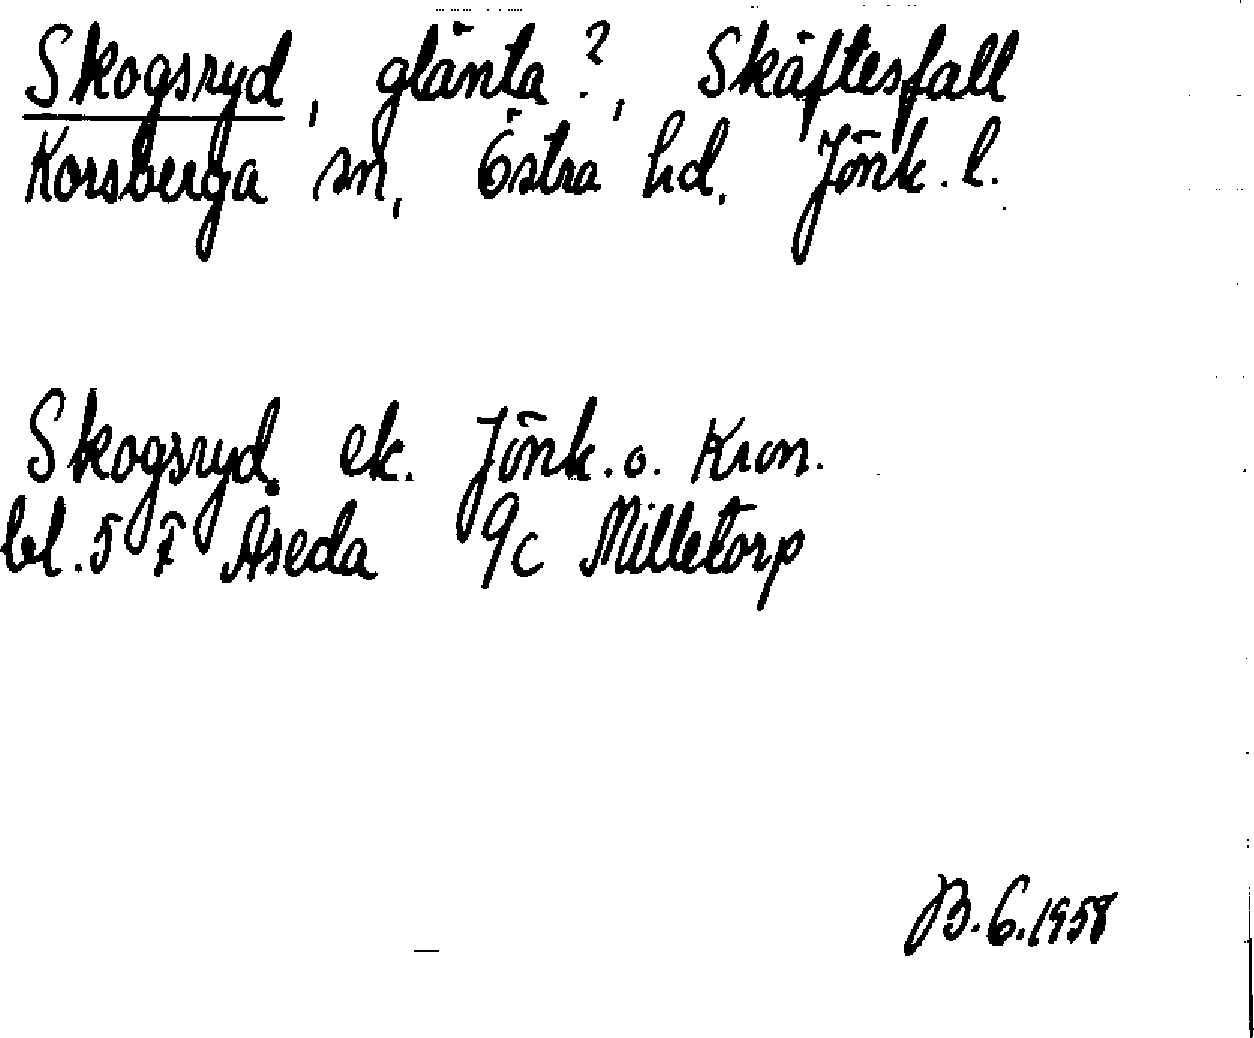 Skogsryd, glänta?, Skäftesfall
Korsberga sn, Östra hd, Jönk. l.
Skogsryd ek. Jönk. o. Kron.
bl. 5 F Åseda 9c Milletorp
B.G.1958